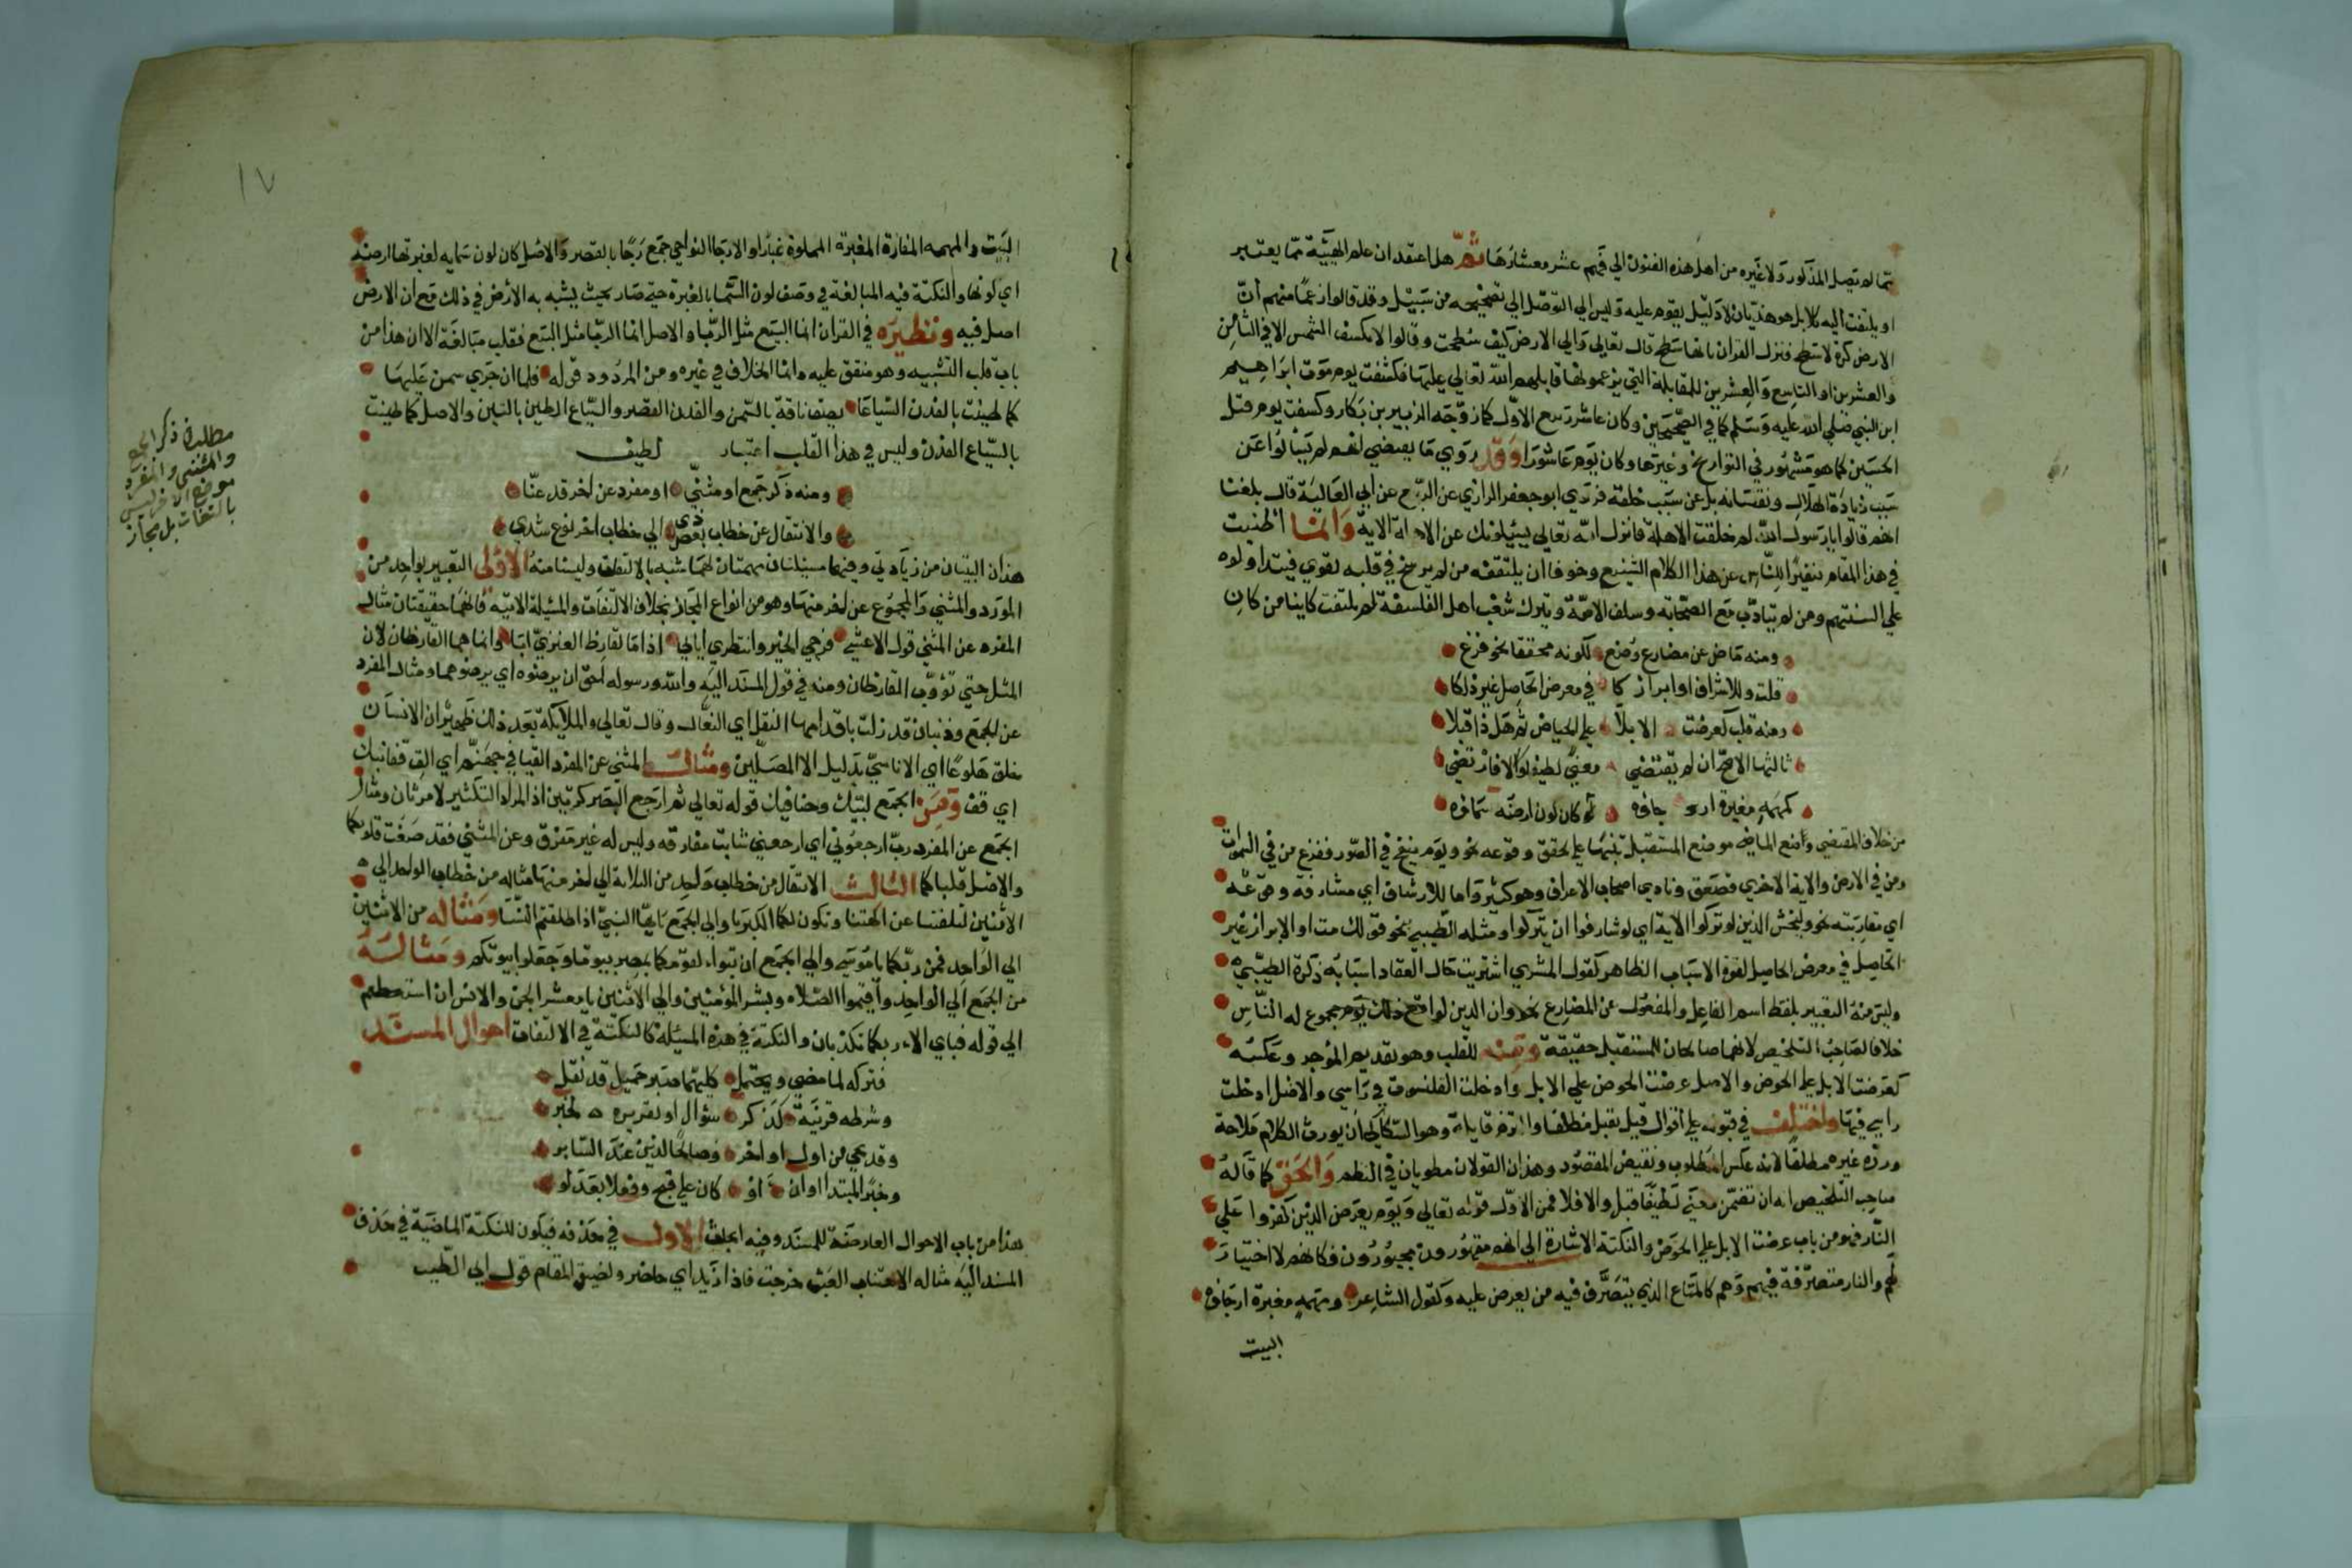 مما لم يصل المذكور ولا غيره من اهل هذه الفنون الي فهم عشر معشارها ثم هل اعتقد ان علم الهيئة مما يعتبر
او يلتفت اليه كلا بل هو هذيان لا دليل يقوم عليه وليس الي التوصل الي تصحيحه من سبيل وقد قالوا زعما منهم انّ
الارض كرة لا سطح فنزل القران بانها سطح قال تعالي والي الارض كيف سطحت وقالوا لا تكسف الشمس الا في الثامن
والعشرين او التاسع والعشرين للمقابلة التي يزعمونها قابلهم الله تعالي عليها فكسفت يوم موت ابراهيم
ابن النبي صلي الله عليه وسلم كما في الصحيحين وكان عاشر ربيع الاول كما رواه الزبير بن بكار وكسفت يوم قتل
الحسين كما هو مشهور في التواريخ وغيرها وكان يوم عاشورا وقد روي ما يقتضي انهم لم يسالوا عن
سبب زيادة الهلال ونقصانه بل عن سبب خلقه فروي ابو جعفر الرازي عن الربيع عن ابي العالية قال بلغنا
انهم قالوا يا رسول الله لم خلقت الاهلة فانزل الله تعالي يسئلونك عن الاهلة الاية وانما اطنبت
في هذا المقام تنفيرا للناس عن هذا الكلام الشنيع وخوفا ان يلتقفه من لم يرسخ في قلبه تقوي فيتداولوه
علي السنتهم ومن لم يتادب مع الصحابة وسلف الامة ويترك شغب اهل الفلسفة لم يلتفت كاينا من كان
ومنه ماض عن مضارع وضع لكونه محققا نحو فزع
قلت وللاشراف او ابراز كا في معرض الحاصل غير ذلكا
ومنه قلب كعرضت الابلا علي الحياض ثم هل ذا قبلا
ثالثها الاصح ان لم يقتضي معني لطيفا لا والا فارتضي
كمهمه مغبرة ارجاؤه كان لون ارضه سماؤه
من خلاف المقتضي وضع الماضي موضع المستقبل تنبيها علي تحقق وقوعه نحو ويوم ينفخ في الصور ففزع من في السموات
ومن في الارض والاية الاخري فصعق ونادي اصحاب الاعراف وهو كثير واما للاشراف اي مشارفة وقوعه
اي مقاربته نحو وليخش الذين لو تركوا الاية اي لو شارفوا ان يتركوا ومثله الطيبي بنحو قولك مت او الابراز غير
الحاصل في معرض الحاصل لقوة الاسباب الظاهر كقول المشتري اشتريت حال انعقاد اسبابه ذكره الطيبي
وليس منه التعبير بلفظ اسم الفاعل والمفعول عن المضارع نحو وان الدين لواقع ذلك يوم مجموع له الناس
خلافا لصاحب التلخيص لانهما صالحان للمستقبل حقيقة ومنه القلب وهو تقديم المؤخر وعكسه
كعرضت الابل علي الحوض والاصل عرضت الحوض علي الابل وادخلت القلنسوة في راسي والاصل ادخلت
راسي فيها واختلف في قبوله علي اقوال قيل يقبل مطلقا وهو السكاكي ان يورث الكلام ملاحة
ورده غيره مطلقا لانه عكس المطلوب ونقيض المقصود وهذان القولان مطويان في النظم والحق كما قاله
صاحب التلخيص انه ان تضمن معني لطيفا قبل والا فلا فمن الاول قوله تعالي ويوم يعرض الذين كفروا علي
النار فهو من باب عرضت الابل علي الحوض والنكتة الاشارة الي انهم مقهورون مجبورون فكانهم لا اختيار
لهم والنار متصرفة فيهم وهم كالمتاع الذي يتصرف فيه من يعرض عليه وكقول الشاعر ومهمه مغبرة ارجاؤه
البيت
١٧
البيت والمهمه المفازة المغبرة المملوة غبارا والارجا النواحي جمع رجا بالقصر والاصل كان لون سمايه لغبرتها لون ارضه
اي لونها والنكتة فيه المبالغة في وصف لون السما بالغبرة حتي صار بحيث يشبه به الارض في ذلك مع ان الارض
اصل فيه ونظيره في القران انما البيع مثل الربا والاصل انما الربا مثل البيع فقلب مبالغة الا ان هذا من
باب قلب التشبيه وهو متفق عليه وانما الخلاف في غيره ومن المردود قوله فلما ان جري سمن عليها
كما طينت بالفدن السياعا يصف ناقة بالسمن والفدن القصر والسياع الطين بالتبن والاصل كما طينت
بالسياع الفدن وليس في هذا القلب اعتبار لطيف
ومنه ذكر جمع او مثني او مفرد عن اخر قد عنّا
والانتقال عن خطاب بعض ذي الي خطاب اخر نوع شذي
هذان البيتان من زيادتي وفيهما مسئلتان مهمتان لهما شبه بالالتفات وليسا منه الاولي التعبير بواحد من
المفرد والمثني والمجموع عن اخر منهما وهو من انواع المجاز بخلاف الالتفات والمسئلة الاتية فانهما حقيقتان مثال
المفرد عن المثني قول الاعشي فرجي الخير وانتظري ايابي اذا ما القارظ العنزي ابا وانما هما القارظان لان
المثل حتي يؤوب القارظان ومنه في قول المسند اليه والله ورسوله احق ان يرضوه اي يرضوهما ومثال المفرد
عن الجمع وذبيان قد زلت باقدامها النعل اي النعال وقال تعالي والملايكة بعد ذلك ظهير ان الانسان
خلق هلوعا اي الاناسي بدليل الا المصلين ومثال المثني عن المفرد القيا في جهنم اي الق قفا نبك
اي قف وعن الجمع لبيك وحنانيك قوله تعالي ثم ارجع البصر كرتين اذ المراد التكثير لا مرتان ومثال
الجمع عن المفرد رب ارجعون اي ارجعني شابت مفارقه وليس له غير مفرق وعن المثني فقد صغت قلوبكما
والاصل قلباكما الثالث الانتقال من خطاب واحد من الثلاثة الي اخر منها مثاله من خطاب الواحد الي
الاثنين لتلفتنا عن الهتنا وتكون لكما الكبريا والي الجمع يايها النبي اذا طلقتم النسا ومثاله من الاثنين
الي الواحد فمن ربكما يا موسي والي الجمع ان تبوءا لقومكما بمصر بيوتا واجعلوا بيوتكم ومثاله
من الجمع الي الواحد واقيموا الصلاه وبشر المؤمنين والي الاثنين يا معشر الجن والانس ان استطعتم
الي قوله فباي الاء ربكما تكذبان والنكتة في هذه المسئلة كالنكتة في الالتفات احوال المسند
فتركه لما مضي ويحتمل كليهما صبر جميل قد نقل
وشرطه قرينة كذكر سؤال او تقديره لخبر
وقد يجي من اول او اخر وصالحا لذين عند السابر
وخبر المبتدا او ان او كان علي قبح وفعلا بعد لو
هذا من باب الاحوال العارضة للمسند وفيه ابحاث الاول في حذفه فيكون للنكتة الماضية في حذف
المسند اليه مثاله لاجتناب العبث خرجت فاذا زيد اي حاضر ولضيق المقام قول ابي الطيب
مطلب ذكر الجمع
والمثني والمفرد
موضع الاخر ليس
بالتفات بل مجاز